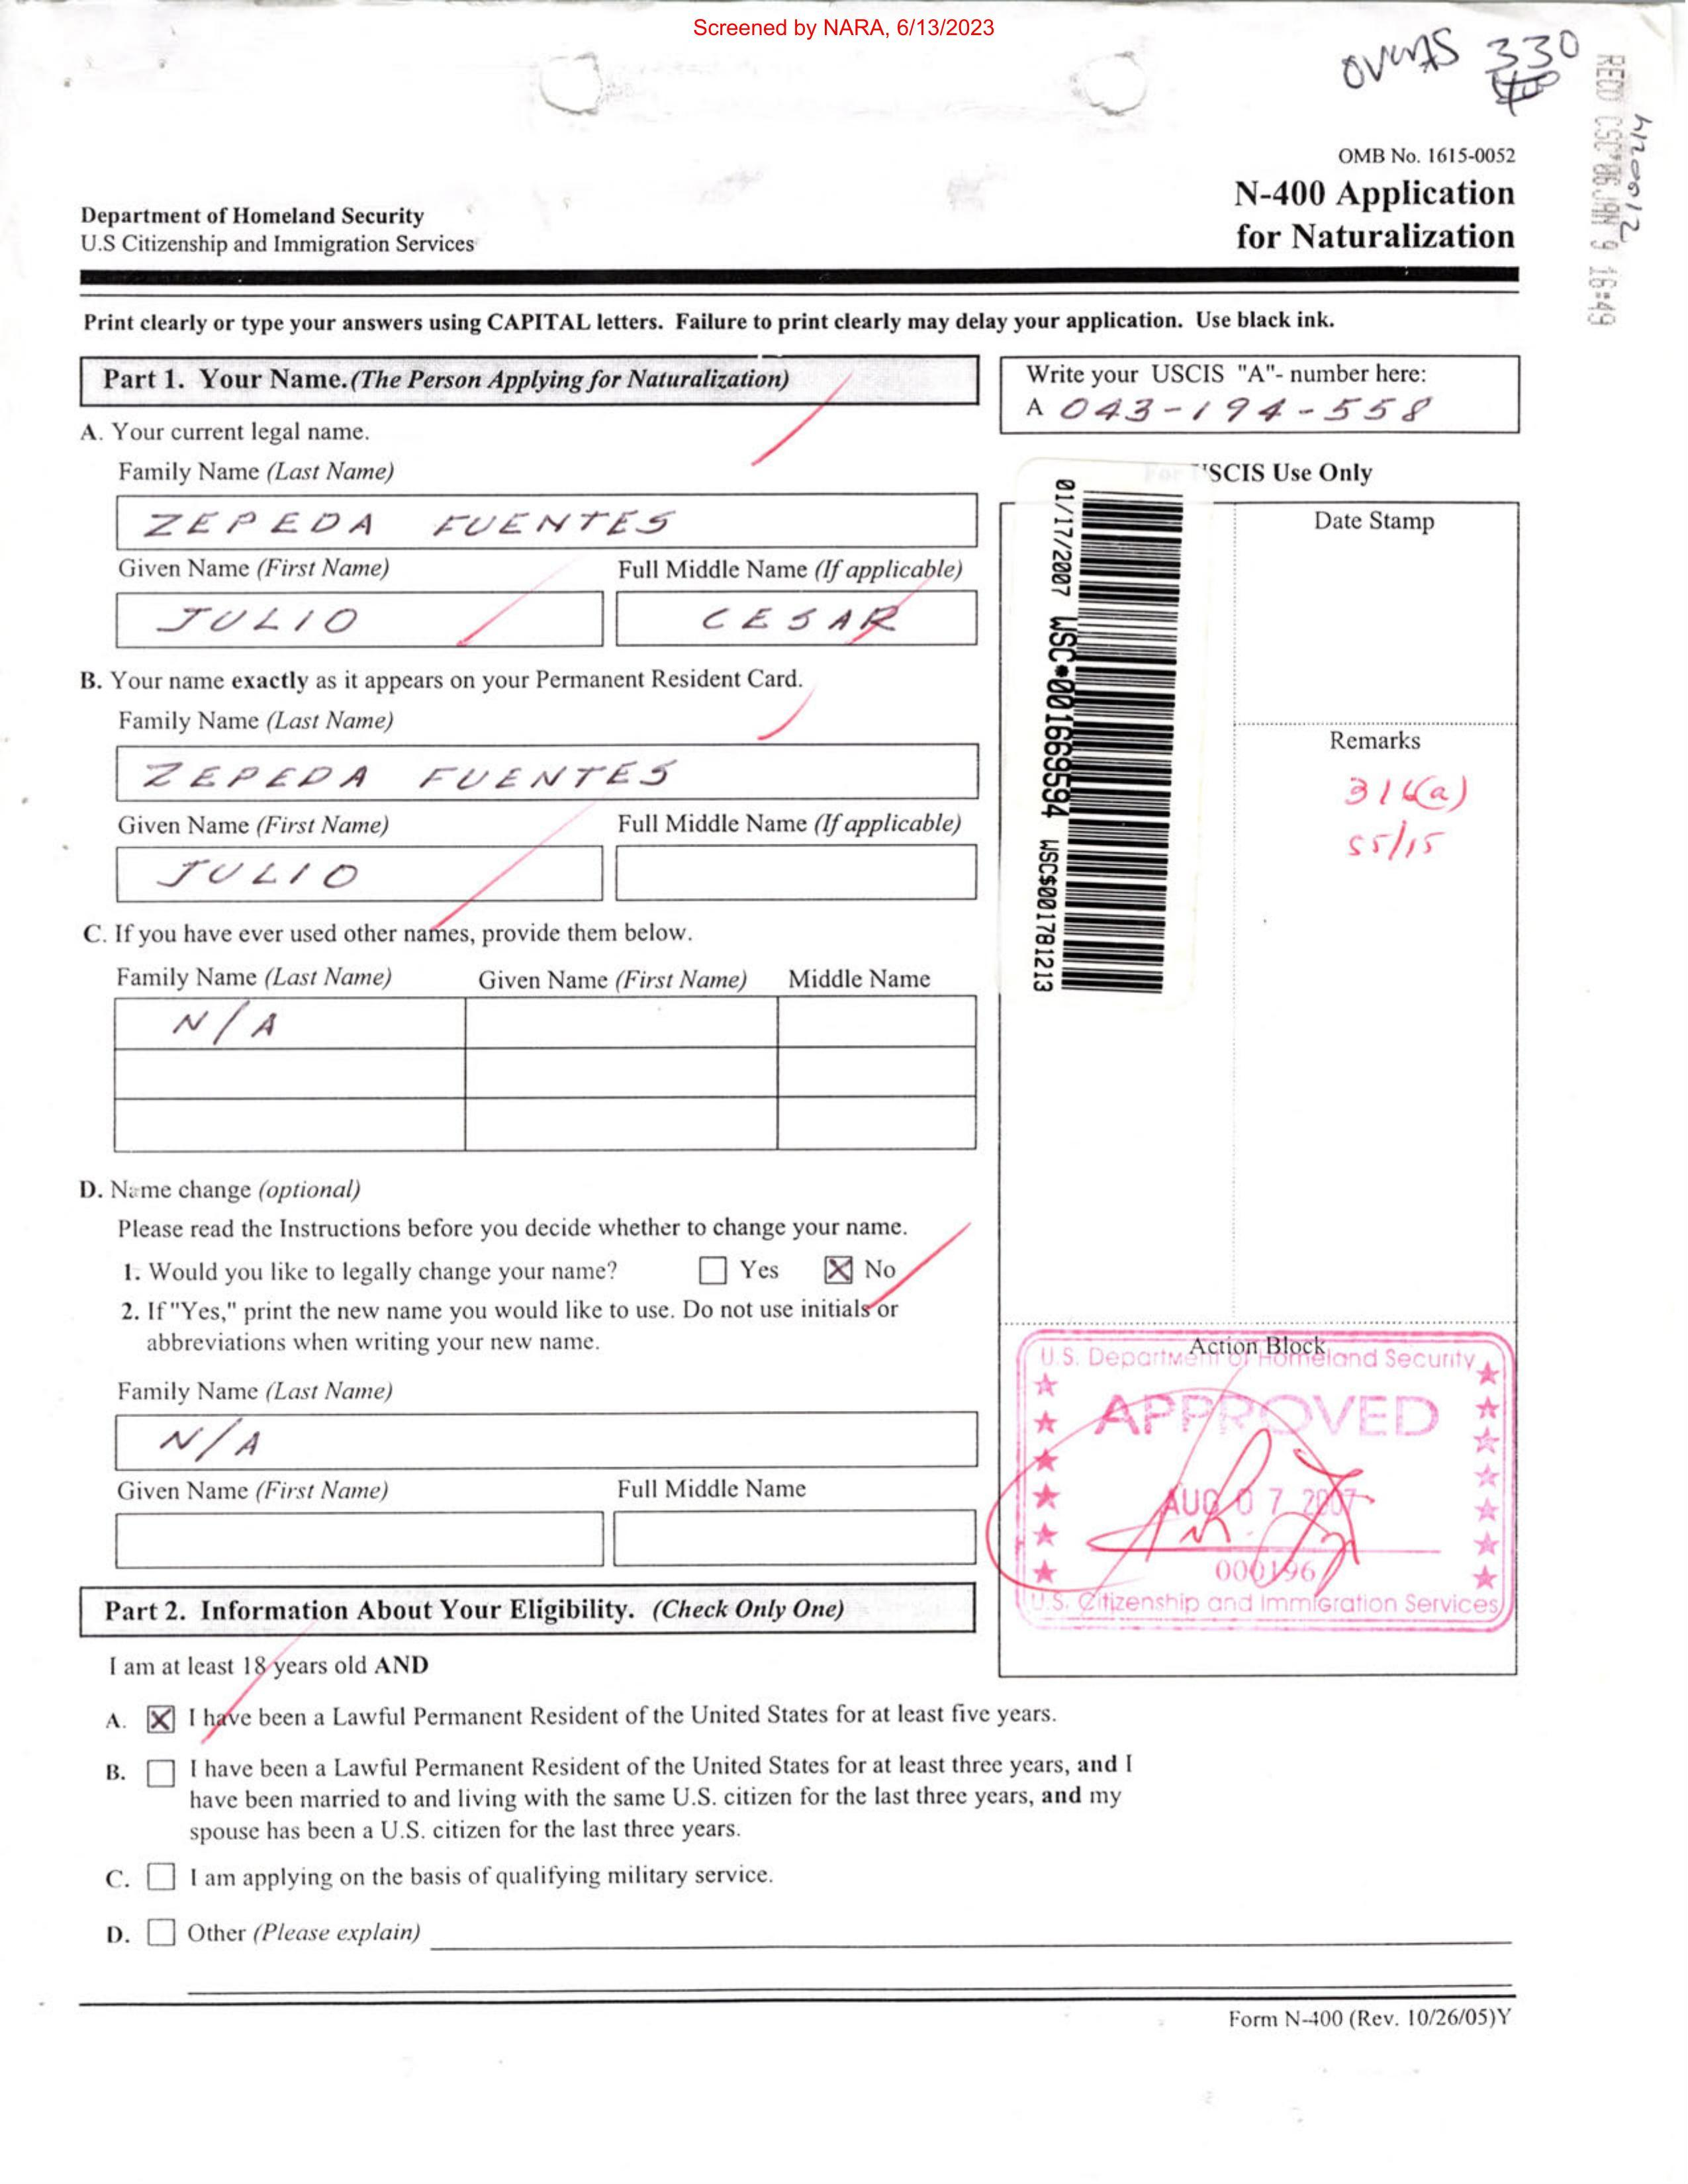 Screened by NARA, 6/13/2023
330
OMB No. 1615-0052
N-400 Application
for Naturalization
Department of Homeland Security
U.S Citizenship and Immigration Services
RECD CSC'06 JAN 9 16:49
Print clearly or type your answers using CAPITAL letters. Failure to print clearly may delay your application. Use black ink.
Part 1. Your Name.(The Person Applying for Naturalization)
Write your USCIS "A"- number here:
A 043-194-558
A. Your current legal name.
Family Name (Last Name)
ZEPEDA FUENTES
Given Name (First Name) Full Middle Name (If applicable)
JULIO CESAR
B. Your name exactly as it appears on your Permanent Resident Card.
Family Name (Last Name)
ZEPEDA FUENTES
Given Name (First Name) Full Middle Name (If applicable)
JULIO
C. If you have ever used other names, provide them below.
Family Name (Last Name) Given Name (First Name) Middle Name
N/A
D. Name change (optional)
Please read the Instructions before you decide whether to change your name.
1. Would you like to legally change your name? Yes No
2. If "Yes," print the new name you would like to use. Do not use initials or
abbreviations when writing your new name.
Family Name (Last Name)
N/A
Given Name (First Name) Full Middle Name
For USCIS Use Only
01/17/2007 WSC*001669594 WSC$001781213
Date Stamp
Remarks
316(a)
55/15
Action Block
U.S. Department of Homeland Security
APPROVED
AUG 07 2007
000196
U.S. Citizenship and Immigration Services
Part 2. Information About Your Eligibility. (Check Only One)
I am at least 18 years old AND
A. I have been a Lawful Permanent Resident of the United States for at least five years.
B. I have been a Lawful Permanent Resident of the United States for at least three years, and I
have been married to and living with the same U.S. citizen for the last three years, and my
spouse has been a U.S. citizen for the last three years.
C. I am applying on the basis of qualifying military service.
D. Other (Please explain)
Form N-400 (Rev. 10/26/05)Y